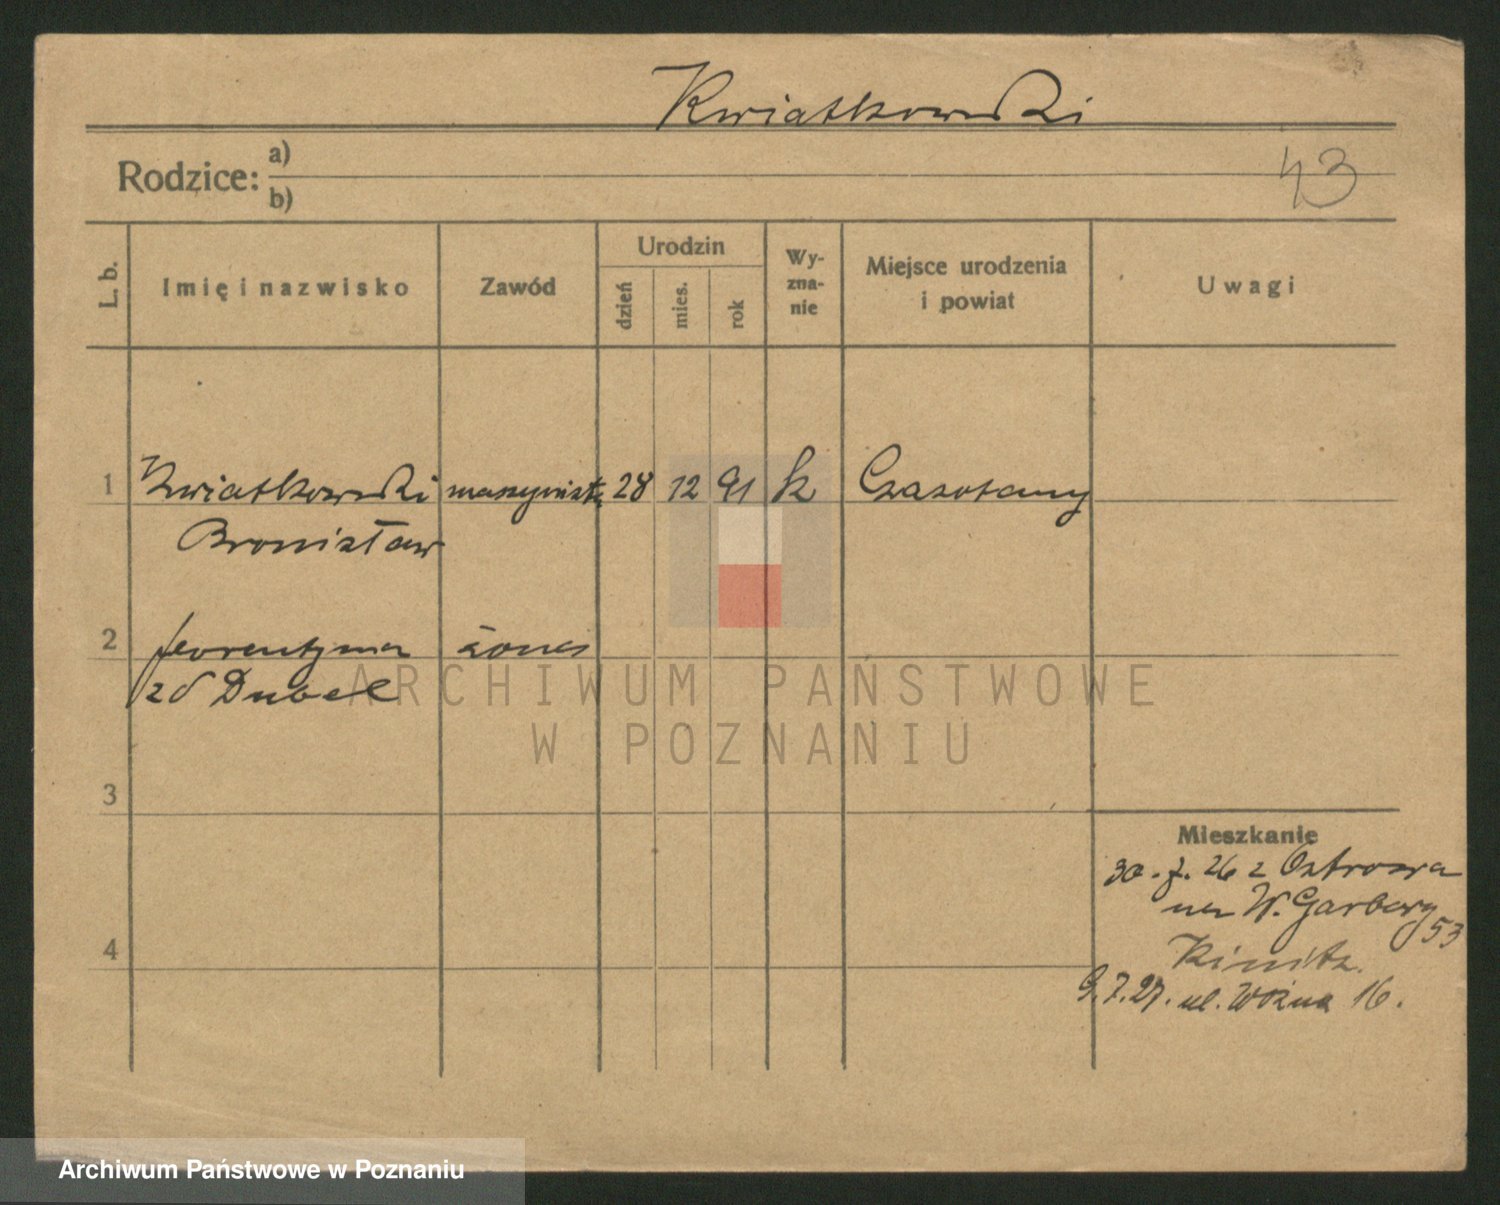 Kwiatkowski
Rodzice: a)
b)
43
L. b.
Imię i nazwisko
Zawód
Urodzin
dzień
mies.
rok
Wy-
zna-
nie
Miejsce urodzenia
i powiat
Uwagi
1 Kwiatkowski maszynista 28 12 91 k Czasotamy
Bronisław
2 florentyna żona
zd Dubel
ARCHIWUM PAŃSTWOWE
W POZNANIU
3
Mieszkanie
30. 7. 26 z Ostrowa
na W. Garbary 53
4
9. 7. 27. ul. Woźna 16.
Archiwum Państwowe w Poznaniu